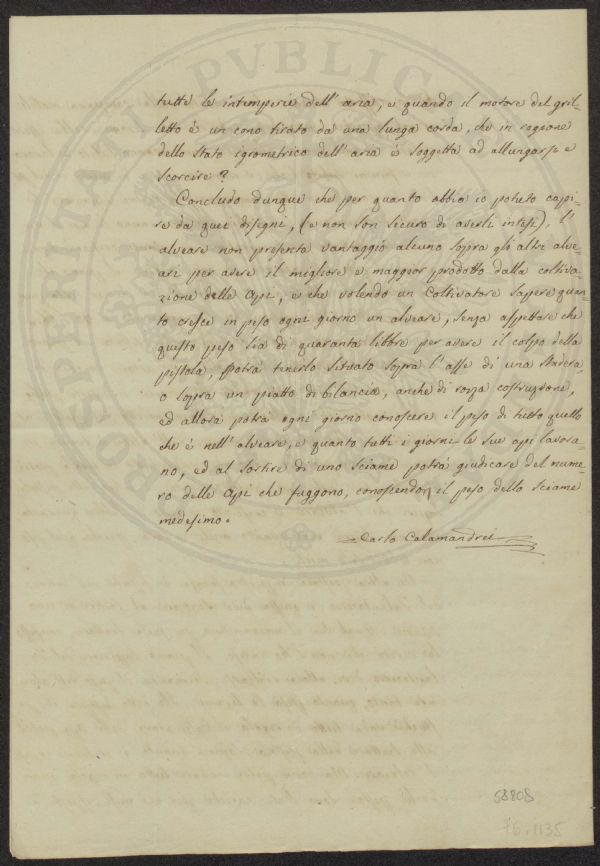 tutte le intemperie dell' aria, e quando il motore del gril=
letto è un cono tirato da una lunga corda, che in ragione
dello stato igrometrico dell' aria è soggetta ad allungarsi e
scorcire?
Concludo dunque che per quanto abbia io potuto capi=
re da quei disegni, (e non son sicuro di averli intesi), l'
alveare non presenta vantaggio alcuno sopra gli altri alve=
ari per avere il migliore e maggior prodotto dalla coltiva=
zione delle Api, e che volendo un Coltivatore sapere quan=
to cresce in peso ogni giorno un alveare, senza aspettare che
questo peso sia di quaranta libbre per avere il colpo della
pistola, potrà tenerlo situato sopra l'asse di una stadera,
o sopra un piatto di bilancia, anche di rozza costruzione,
ed allora potrà ogni giorno conoscere il peso di tutto quello
che è nell' alveare, e quanto tutti i giorni le sue api lavora=
no, ed al sortire di uno sciame potrà giudicare del nume=
ro delle Api che fuggono, conoscendon il peso dello sciame
medesimo.
Carlo Calamandrei
PROSPERITATI PVBLICAE
58808
76.1135